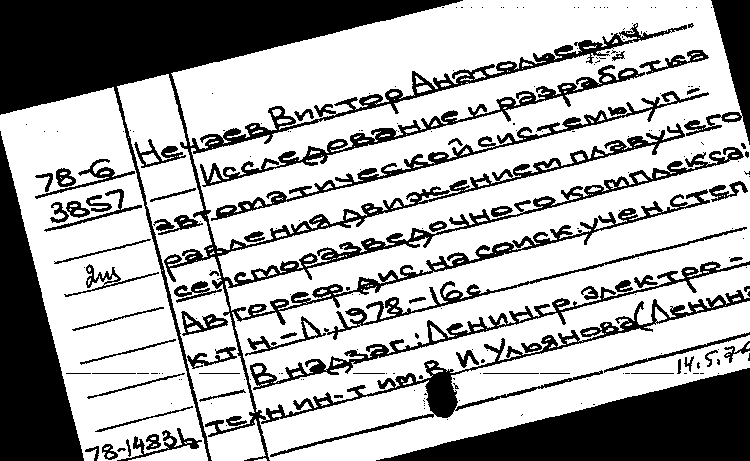 Нечаев, Виктор Анатольевич
78-6
Исследование и разработка
3857
автоматической системы уп-
равления движением плавучего
2ш
сейсморазведочного комплекса:
Автореф. дис. на соиск. учен. степ
к.т.н. - Л., 1978. - 16 с.
В надзаг.: Ленингр. электро-
техн. ин-т им. В. И. Ульянова (Ленина
14.5.78
78-14831